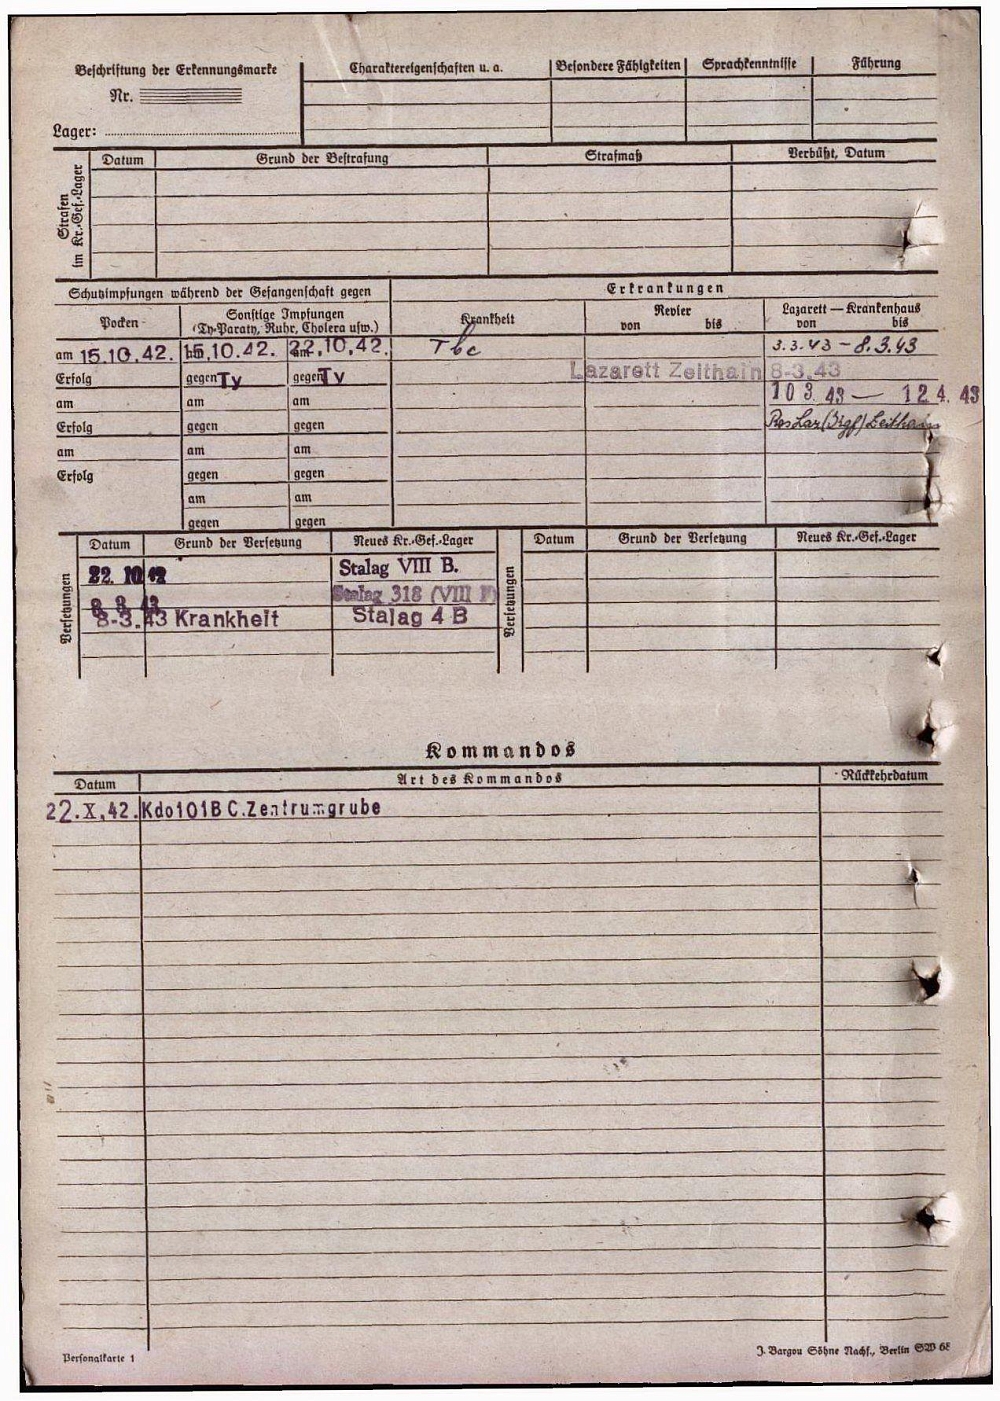 Beschriftung der Erkennungsmarke
Nr.
Lager:
Charaktereigenschaften u. a.
Besondere Fähigkeiten
Sprachkenntnisse
Führung
Strafen im Kr.-Gef.-Lager
Datum
Grund der Bestrafung
Strafmaß
Verbüßt, Datum
Schutzimpfungen während der Gefangenschaft gegen
Erkrankungen
Pocken
Sonstige Impfungen
(Ty-Paraty, Ruhr, Cholera usw.)
Krankheit
Revier
von bis
Lazarett — Krankenhaus
von bis
am 15.10.42. 15.10.42. 22.10.42. Tbc 3.3.43 – 8.3.43
Erfolg gegen Ty gegen Ty Lazarett Zeithain 8-3.43
am am am 10 3. 43 — 12 4. 43
Erfolg gegen gegen
am am am
Erfolg gegen gegen
am am
gegen gegen
Versetzungen
Datum Grund der Versetzung Neues Kr.-Gef.-Lager
22. 10 42 Stalag VIII B.
8. 3. 43 Stalag 318 (VIII F)
8-3.43 Krankheit Stalag 4 B
Versetzungen
Datum Grund der Versetzung Neues Kr.-Gef.-Lager
Kommandos
Datum Art des Kommandos Rückkehrdatum
22.X.42. Kdo 101 B C.Zentrumgrube
Personalkarte 1
J. Bargou Söhne Nachf., Berlin SW 68